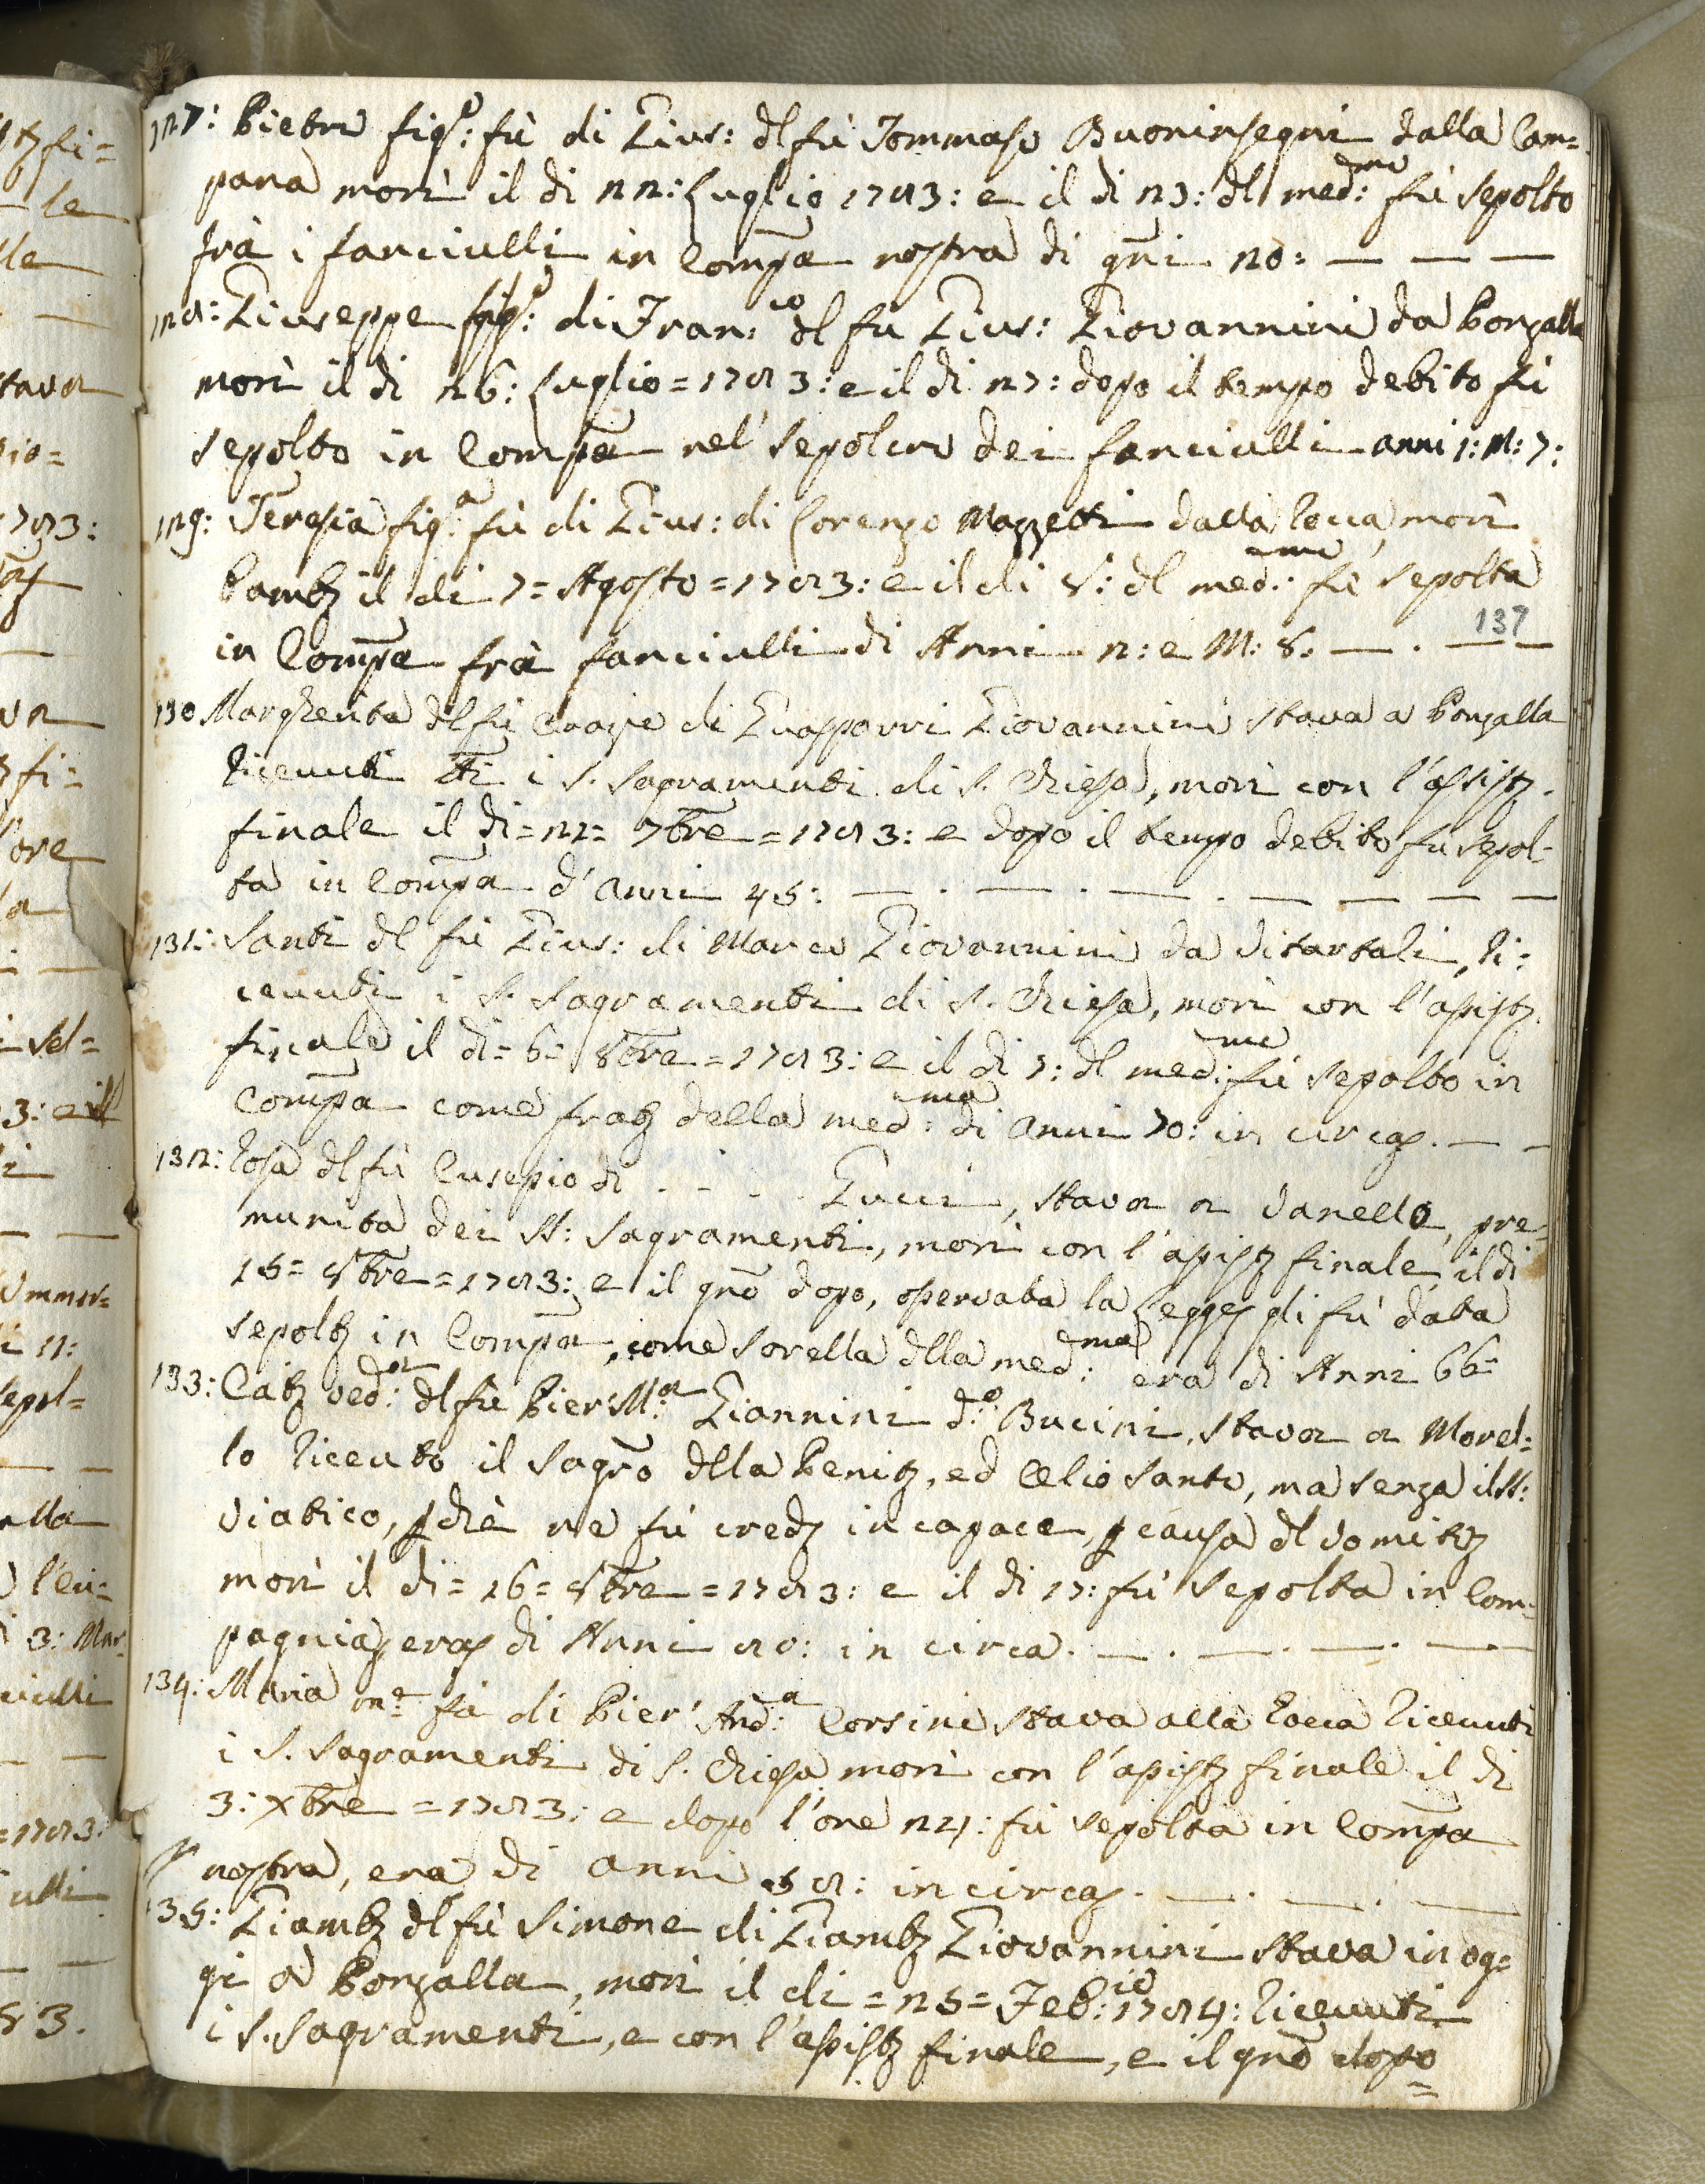 127: Pietro figº: fù di Gius: dl fù Tommaso Buoninsegni dalla Cam=
pana morì il dì 22: Luglio 1783: e il dì 23: dl med:mo fù sepolto
frà i fanciulli in Compa nostra di gni 20: — — —
128: Giuseppe figº: di Fran:co dl fù Gius: Giovannini da Ponzalla
morì il dì 26: Luglio = 1783: e il dì 27: dopo il tempo debito fù
sepolto in Compa nel' sepolcro dei fanciulli anni 1: M: 7:
129: Teresia figa: fù di Gius: di Lorenzo Mazzetti dalla Rocca, morì
Bamb il dì 7= Agosto = 1783: e il dì 8: dl med:mo fù sepolta
in Compa frà fanciulli di Anni 2: e M: 8. — . — —
137
130 Margherita dl fù di Guasparri Giovannini stava a Ponzalla
Ricevuti tti i S. Sagramenti di S. Chiesa, morì con l'assist.
finale il dì = 22= 7bre = 1783: e dopo il tempo debito fù sepol-
ta in Compa d'anni 45: — . — . — . — — — —
131: Santi dl fù Gius: di Marco Giovannini da Vitartali, Ri=
cevuti i S. Sagramenti di S. Chiesa, morì con l'assist.
finale il dì = 6= 8bre = 1783: e il dì 7: dl med:mo fù sepolto in
Compa come frat della med:ma di anni 70: in circa. — —
132: Rosa dl fù Eusepio di . - . . Tucci, stava a Vanello, pre=
munita dei SS: Sagramenti, morì con l'assist finale il dì
15= 8bre = 1783: e il gno dopo, osservata la Legge gli fù data
sepolt in Compa, come sorella dlla med:ma era di Anni 66=
133: Cat ved:a dl fù Pier' M:a Giannini d:o Bucini, stava a Morel=
lo Ricevuto il Sagro dlla Penit, ed Olio Santo, ma senza il SS:
Viatico, pchè ne fù cred incapace, p causa dl vomito
morì il dì = 16= 8bre = 1783: e il dì 17: fù sepolta in Com=
pagnia, era di Anni 80: in circa. — . — . — . —
134: Maria me fù di Pier' And:a Corsini stava alla Rocca Ricevuti
i S. Sagramenti di S. Chiesa morì con l'assist finale il dì
3: Xbre = 1783: e dopo l'ore 24: fù sepolta in Compa
nostra, era di anni 58: in circa. — . — . —
135: Giamb dl fù Simone di Giamb Giovannini stava in og=
gi a Ponzalla, morì il dì = 25= Feb:io 1784: Ricevuti
i S. Sagramenti, e con l'assist finale, e il gno dopo
=